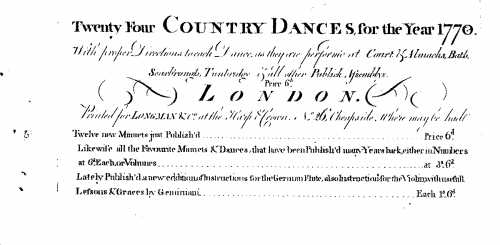 Twenty Four COUNTRY DANCES, for the Year 1770.
With proper Directions to each Dance, as they are perform'd at Court & Almacks, Bath,
Scarbrough, Tunbridge & all other Publick Assemblys.
Price 6d
LONDON.
Printed for LONGMAN & Co. at the Harp & Crown. No. 26, Cheapside. Where may be had
Twelve new Minuets just Publish'd Price 6d
Likewise all the Favourite Minuets & Dances, that have been Publish'd many Years back, either in Numbers
at 6d Each, or Volumes at 3s. 6d
Lately Publish'd a new edition of Instructions for the German Flute, also Instructions for the Violin with usefull
Lessons & Graces by Geminiani Each 1s. 6d.